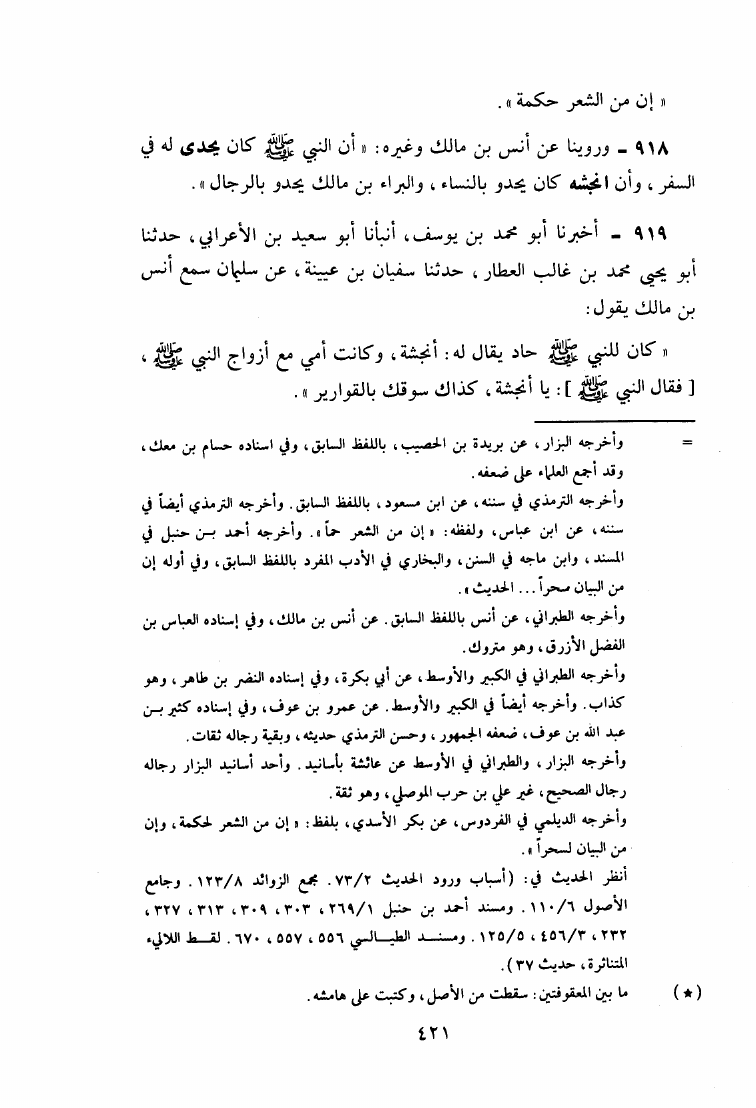 « إن من الشعر حكمة ».
٩١٨ - وروينا عن أنس بن مالك وغيره: « أن النبي ﷺ كان يحدى له في
السفر، وأن انجشه كان يحدو بالنساء، والبراء بن مالك يحدو بالرجال ».
٩١٩ - أخبرنا أبو محمد بن يوسف، أنبأنا أبو سعيد بن الأعرابي، حدثنا
أبو يحيى محمد بن غالب العطار، حدثنا سفيان بن عيينة، عن سليمان سمع أنس
بن مالك يقول:
« كان للنبي ﷺ حاد يقال له: أنجشة، وكانت أمي مع أزواج النبي ﷺ،
[ فقال النبي ﷺ ]: يا أنجشة، كذاك سوقك بالقوارير ».
= وأخرجه البزار، عن بريدة بن الحصيب، باللفظ السابق، وفي اسناده حسام بن معك،
وقد أجمع العلماء على ضعفه.
وأخرجه الترمذي في سننه، عن ابن مسعود، باللفظ السابق. وأخرجه الترمذي أيضاً في
سننه، عن ابن عباس، ولفظه: « إن من الشعر حماً ». وأخرجه أحمد بن حنبل في
المسند، وابن ماجه في السنن، والبخاري في الأدب المفرد باللفظ السابق، وفي أوله إن
من البيان سحراً ... الحديث ».
وأخرجه الطبراني، عن أنس باللفظ السابق. عن أنس بن مالك، وفي إسناده العباس بن
الفضل الأزرق، وهو متروك.
وأخرجه الطبراني في الكبير والأوسط، عن أبي بكرة، وفي إسناده النضر بن طاهر، وهو
كذاب. وأخرجه أيضاً في الكبير والأوسط. عن عمرو بن عوف، وفي إسناده كثير بن
عبد الله بن عوف، ضعفه الجمهور، وحسن الترمذي حديثه، وبقية رجاله ثقات.
وأخرجه البزار، والطبراني في الأوسط عن عائشة بأسانيد. وأحد أسانيد البزار رجاله
رجال الصحيح، غير علي بن حرب الموصلي، وهو ثقة.
وأخرجه الديلمي في الفردوس، عن بكر الأسدي، بلفظ: « إن من الشعر لحكمة، وإن
من البيان لسحراً ».
أنظر الحديث في: (أسباب ورود الحديث ٧٣/٢. مجمع الزوائد ١٢٣/٨. وجامع
الأصول ١١٠/٦. ومسند أحمد بن حنبل ٢٦٩/١، ٣٠٣، ٣٠٩، ٣١٣، ٣٢٧،
٢٣٢، ٤٥٦/٣، ١٢٥/٥. ومسند الطيالسي ٥٥٦، ٥٥٧، ٦٧٠. لقط اللآليء
المتناثرة، حديث ٣٧).
(★) ما بين المعقوفتين: سقطت من الأصل، وكتبت على هامشه.
٤٢١